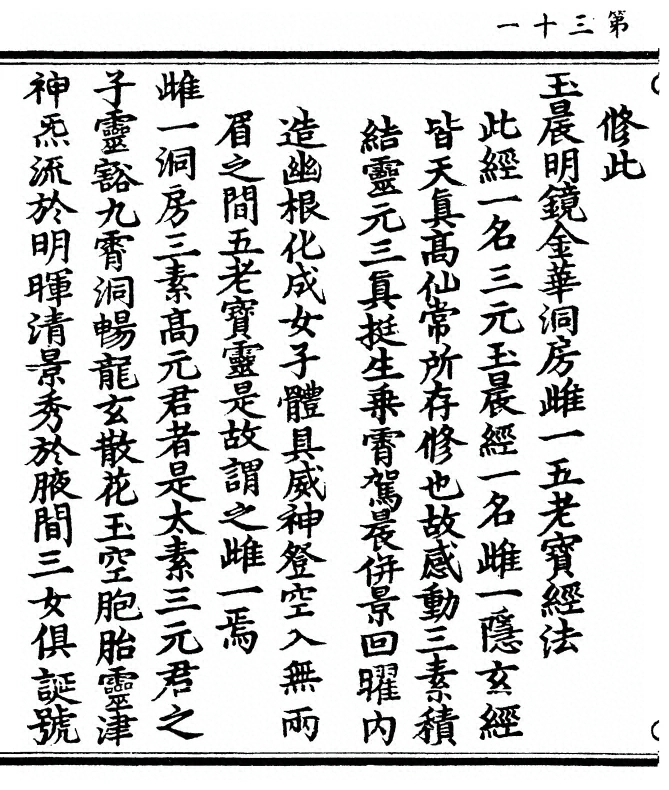 第三十一
修此
玉晨明鏡金華洞房雌一五老寶經法
此經一名三元玉晨經一名雌一隱玄經
皆天真髙仙常所存修也故感動三素積
結靈元三真挺生乗霄駕晨併景回曜內
造幽根化成女子體具威神登空入無兩
眉之間五老寶靈是故謂之雌一焉
雌一洞房三素髙元君者是太素三元君之
子靈豁九霄洞暢龍玄散花玉空胞胎靈津
神炁流於明暉清景秀於腋間三女俱誕號